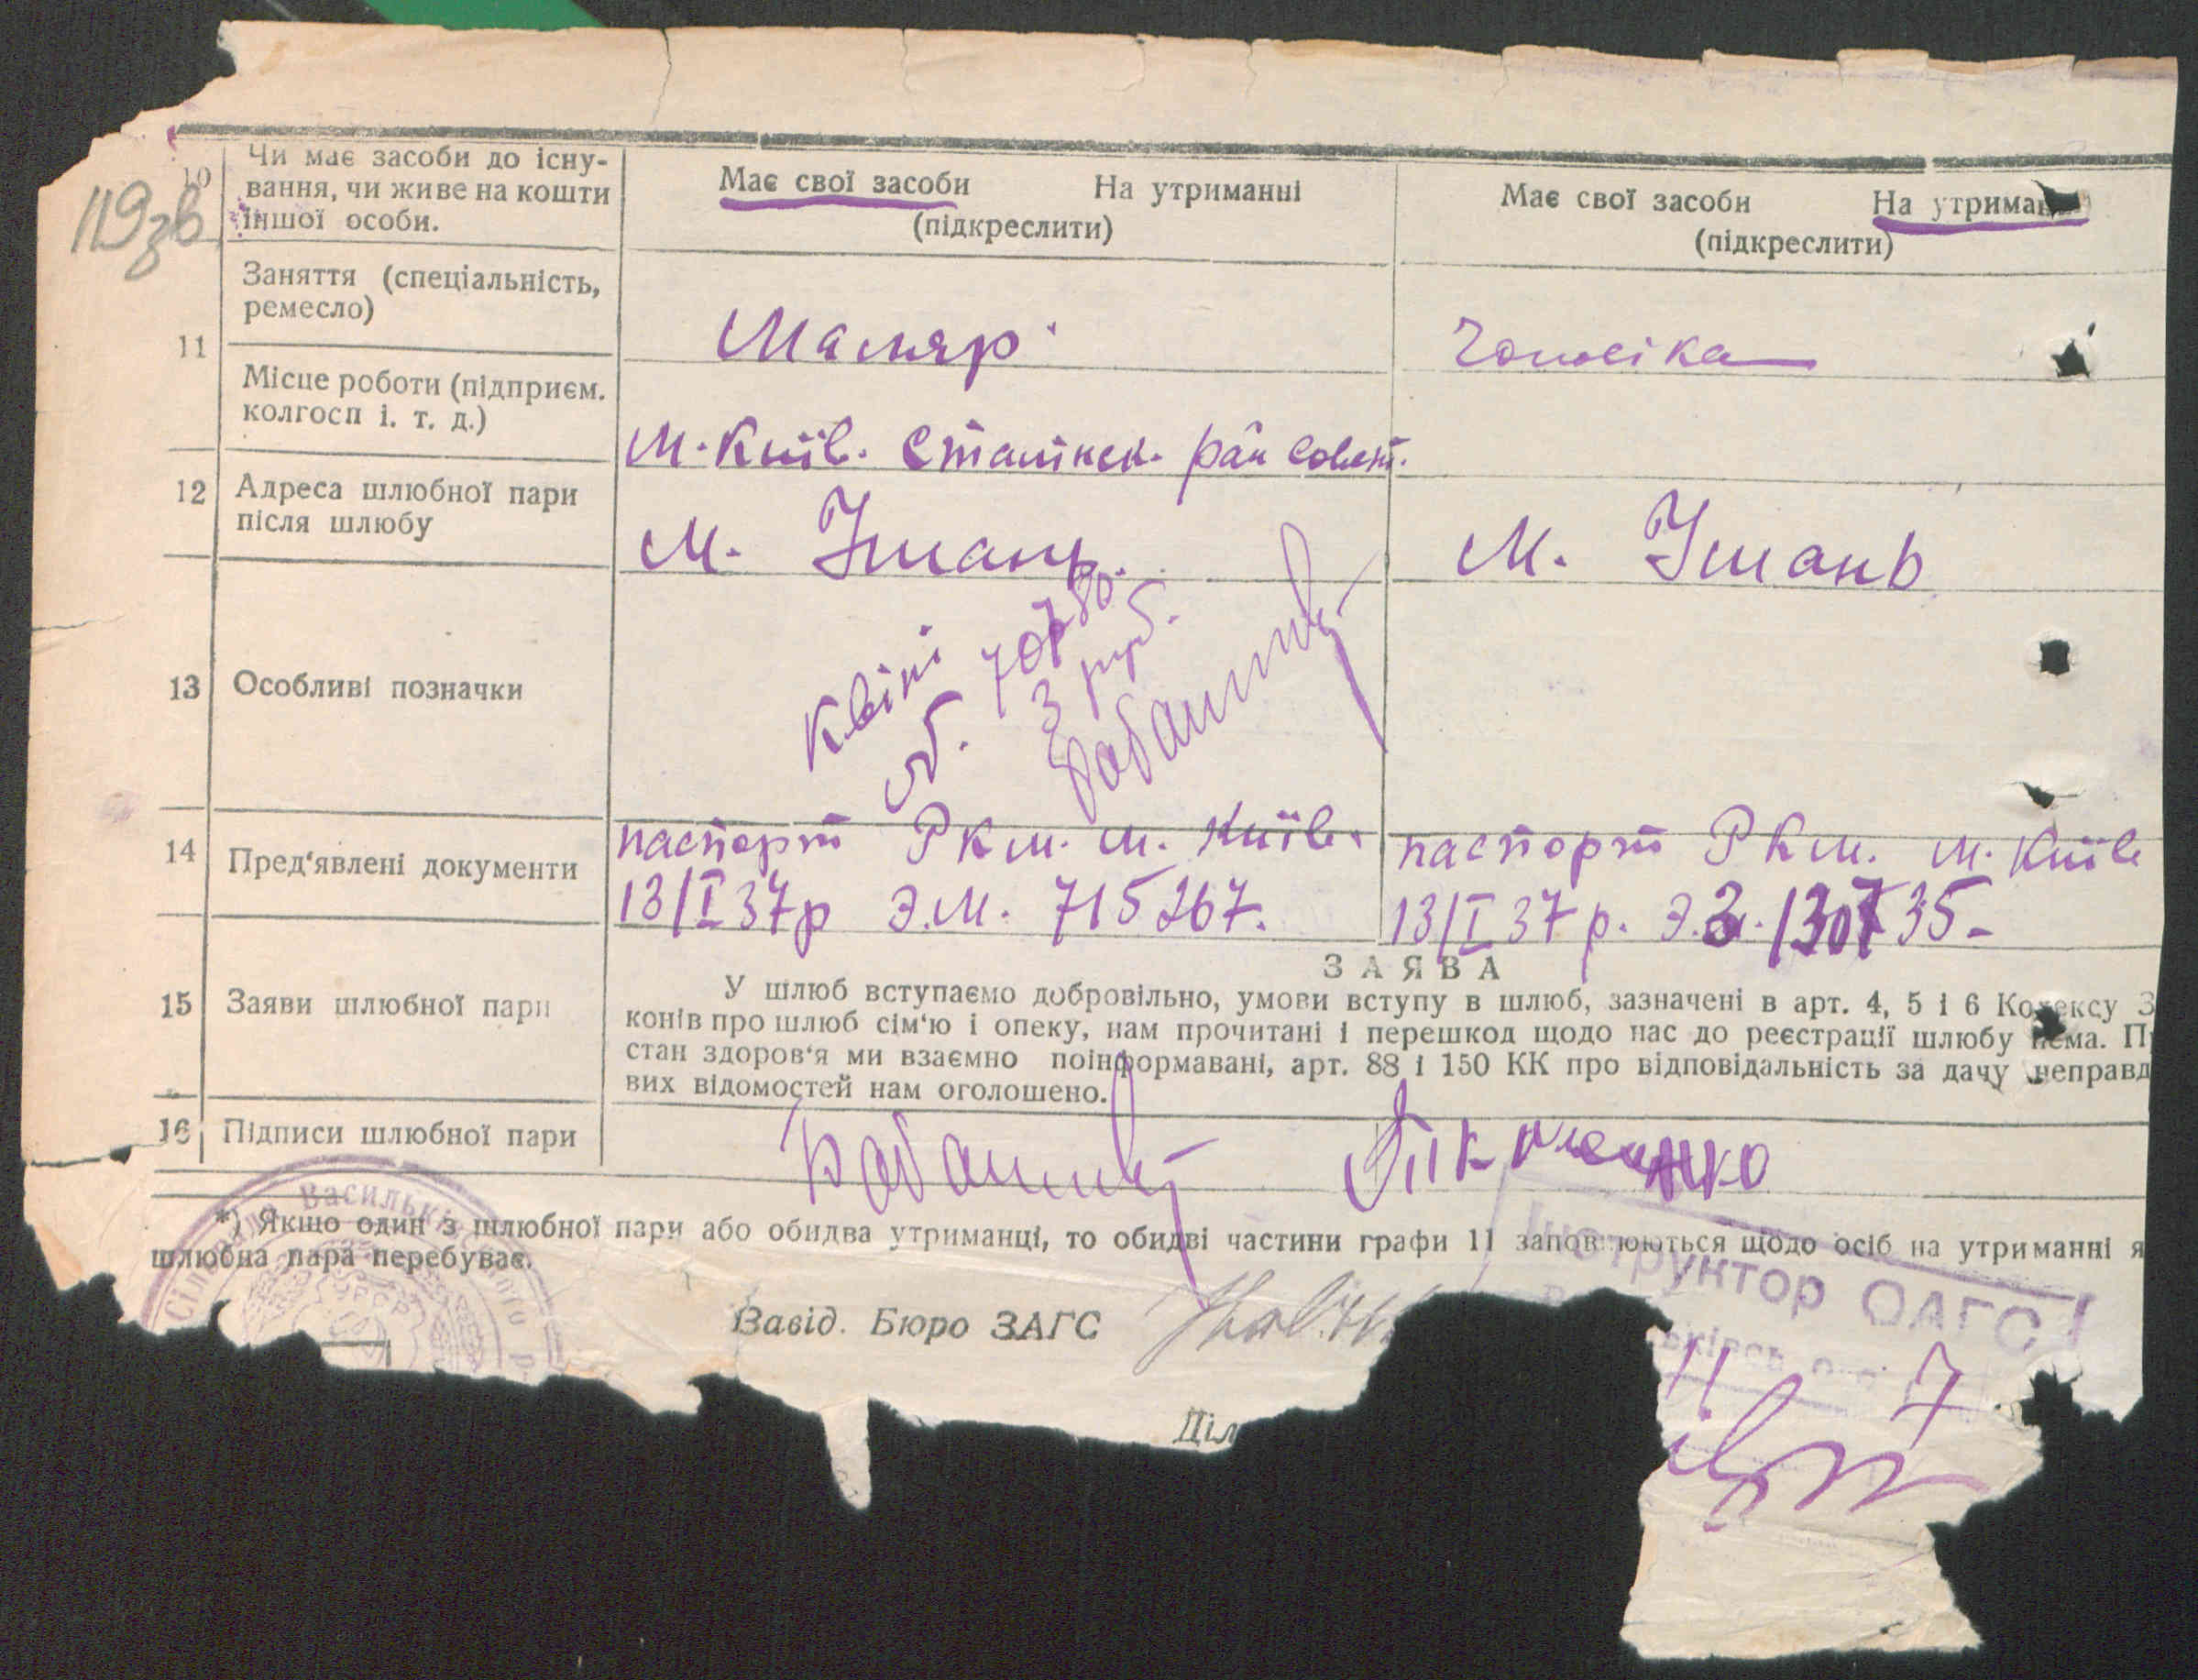 119зв
10 Чи має засоби до існу-
вання, чи живе на кошти
іншої особи.
Має свої засоби На утриманні
(підкреслити)
Має свої засоби На утриман
(підкреслити)
11 Заняття (спеціальність,
ремесло)
Маляр
Чоловіка
Місце роботи (підприєм.
колгосп і. т. д.)
М. Київ. Сталінск. рай совет.
12 Адреса шлюбної пари
після шлюбу
М. Умань.
М. Умань
13 Особливі позначки
Квіт.
об. 707780
3 руб.
14 Пред'явлені документи
паспорт РКМ. м. Київ.
13/I 37р Э.М. 715267.
паспорт РКМ. м. Київ
13/I 37 р. Э. 130735-
15 Заяви шлюбної пари
ЗАЯВА
У шлюб вступаємо добровільно, умови вступу в шлюб, зазначені в арт. 4, 5 і 6 Кодексу З
конів про шлюб сім'ю і опеку, нам прочитані і перешкод щодо нас до реєстрації шлюбу нема. П
стан здоров'я ми взаємно поінформавані, арт. 88 і 150 КК про відповідальність за дачу неправд
вих відомостей нам оголошено.
16 Підписи шлюбної пари
*) Якщо один з шлюбної пари або обидва утриманці, то обидві частини графи 11 заповнюються щодо осіб на утриманні я
шлюбна пара перебуває.
Васильківського
УРСР
Інструктор ОАГС
Завід. Бюро ЗАГС
Діл